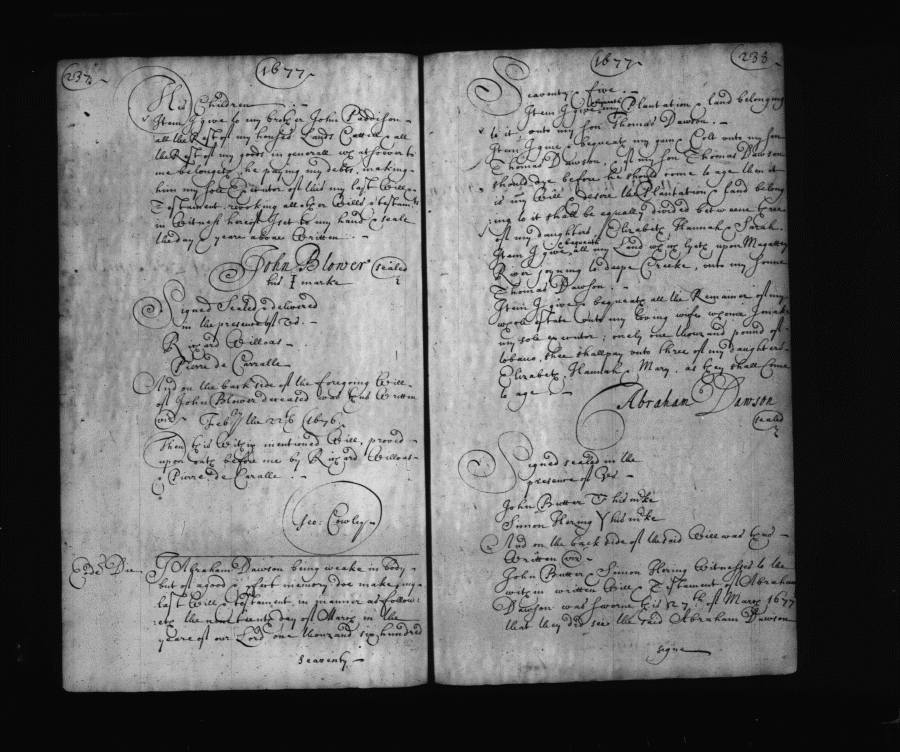 237.
1677
His Children
Item I give to my brother John Paddison
all the Rest of my houses Lands Cattle & all
the Rest of my goods in generall whatsoever to
me belongeth, he paying my debts, making
him my sole Executor of this my last Will &
Testament, revoking all other Wills & testamts
in Witness hereof I set to my hand & seale
the day & yeare above Written.
John Blower sealed
his I marke
Signed Sealed & delivered
in the presence of Us.
Richard Willoas
Pierre de Carralle
And on the back side of the foregoing Will
of John Blower deceased was thus Written
viz Feby the 22th 1676
Then this Within mentioned Will, proved
upon oath before me by Richard Willoas
& Pierre de Carralle
Geo: Cowley
Eodm Die I Abraham Dawson being weake in body
but of a good & pfect memory doe make my
last Will & Testament, in manner as follow:
eth the nine & twenty day of March in the
yeare of our Lord one thousand six hundred
seaventy
238
1677
Seaventy five.
Item I give & bequeath my Plantation & land belonging
to it unto my son Thomas Dawson.
Item I give & bequeath my young Colt unto my son
Thomas Dawson, if my son Thomas Dawson
should dye before he should come to age then it
is my Will & desire the Plantation & land belong
:ing to it shall be equally divided betweene three
of my daughters Elizabeth, Hannah & Sarah.
Item I give & bequeath all my Land which lyeth upon Magatty
River joyning to deepe Creeke, unto my sonne
Thomas Dawson.
Item I give & bequeath all the Remainer of my
whole estate unto my loving wife whome I make
my sole executor, onely one thousand pound of
tobaco, shee shall pay unto three of my daughters
Elizabeth, Hannah & Mary, as they shall come
to age
Abraham Dawson
sealed
Signed sealed in the
presence of Us
John Butter his mke
Simon Hering Y his mke
And on the back side of the said Will was thus
Written viz
John Butter & Simon Hering Witnesses to the
within written Will & Testament of Abraham
Dawson was sworne this 27th of March 1677
that they did see the said Abraham Dawson
signe